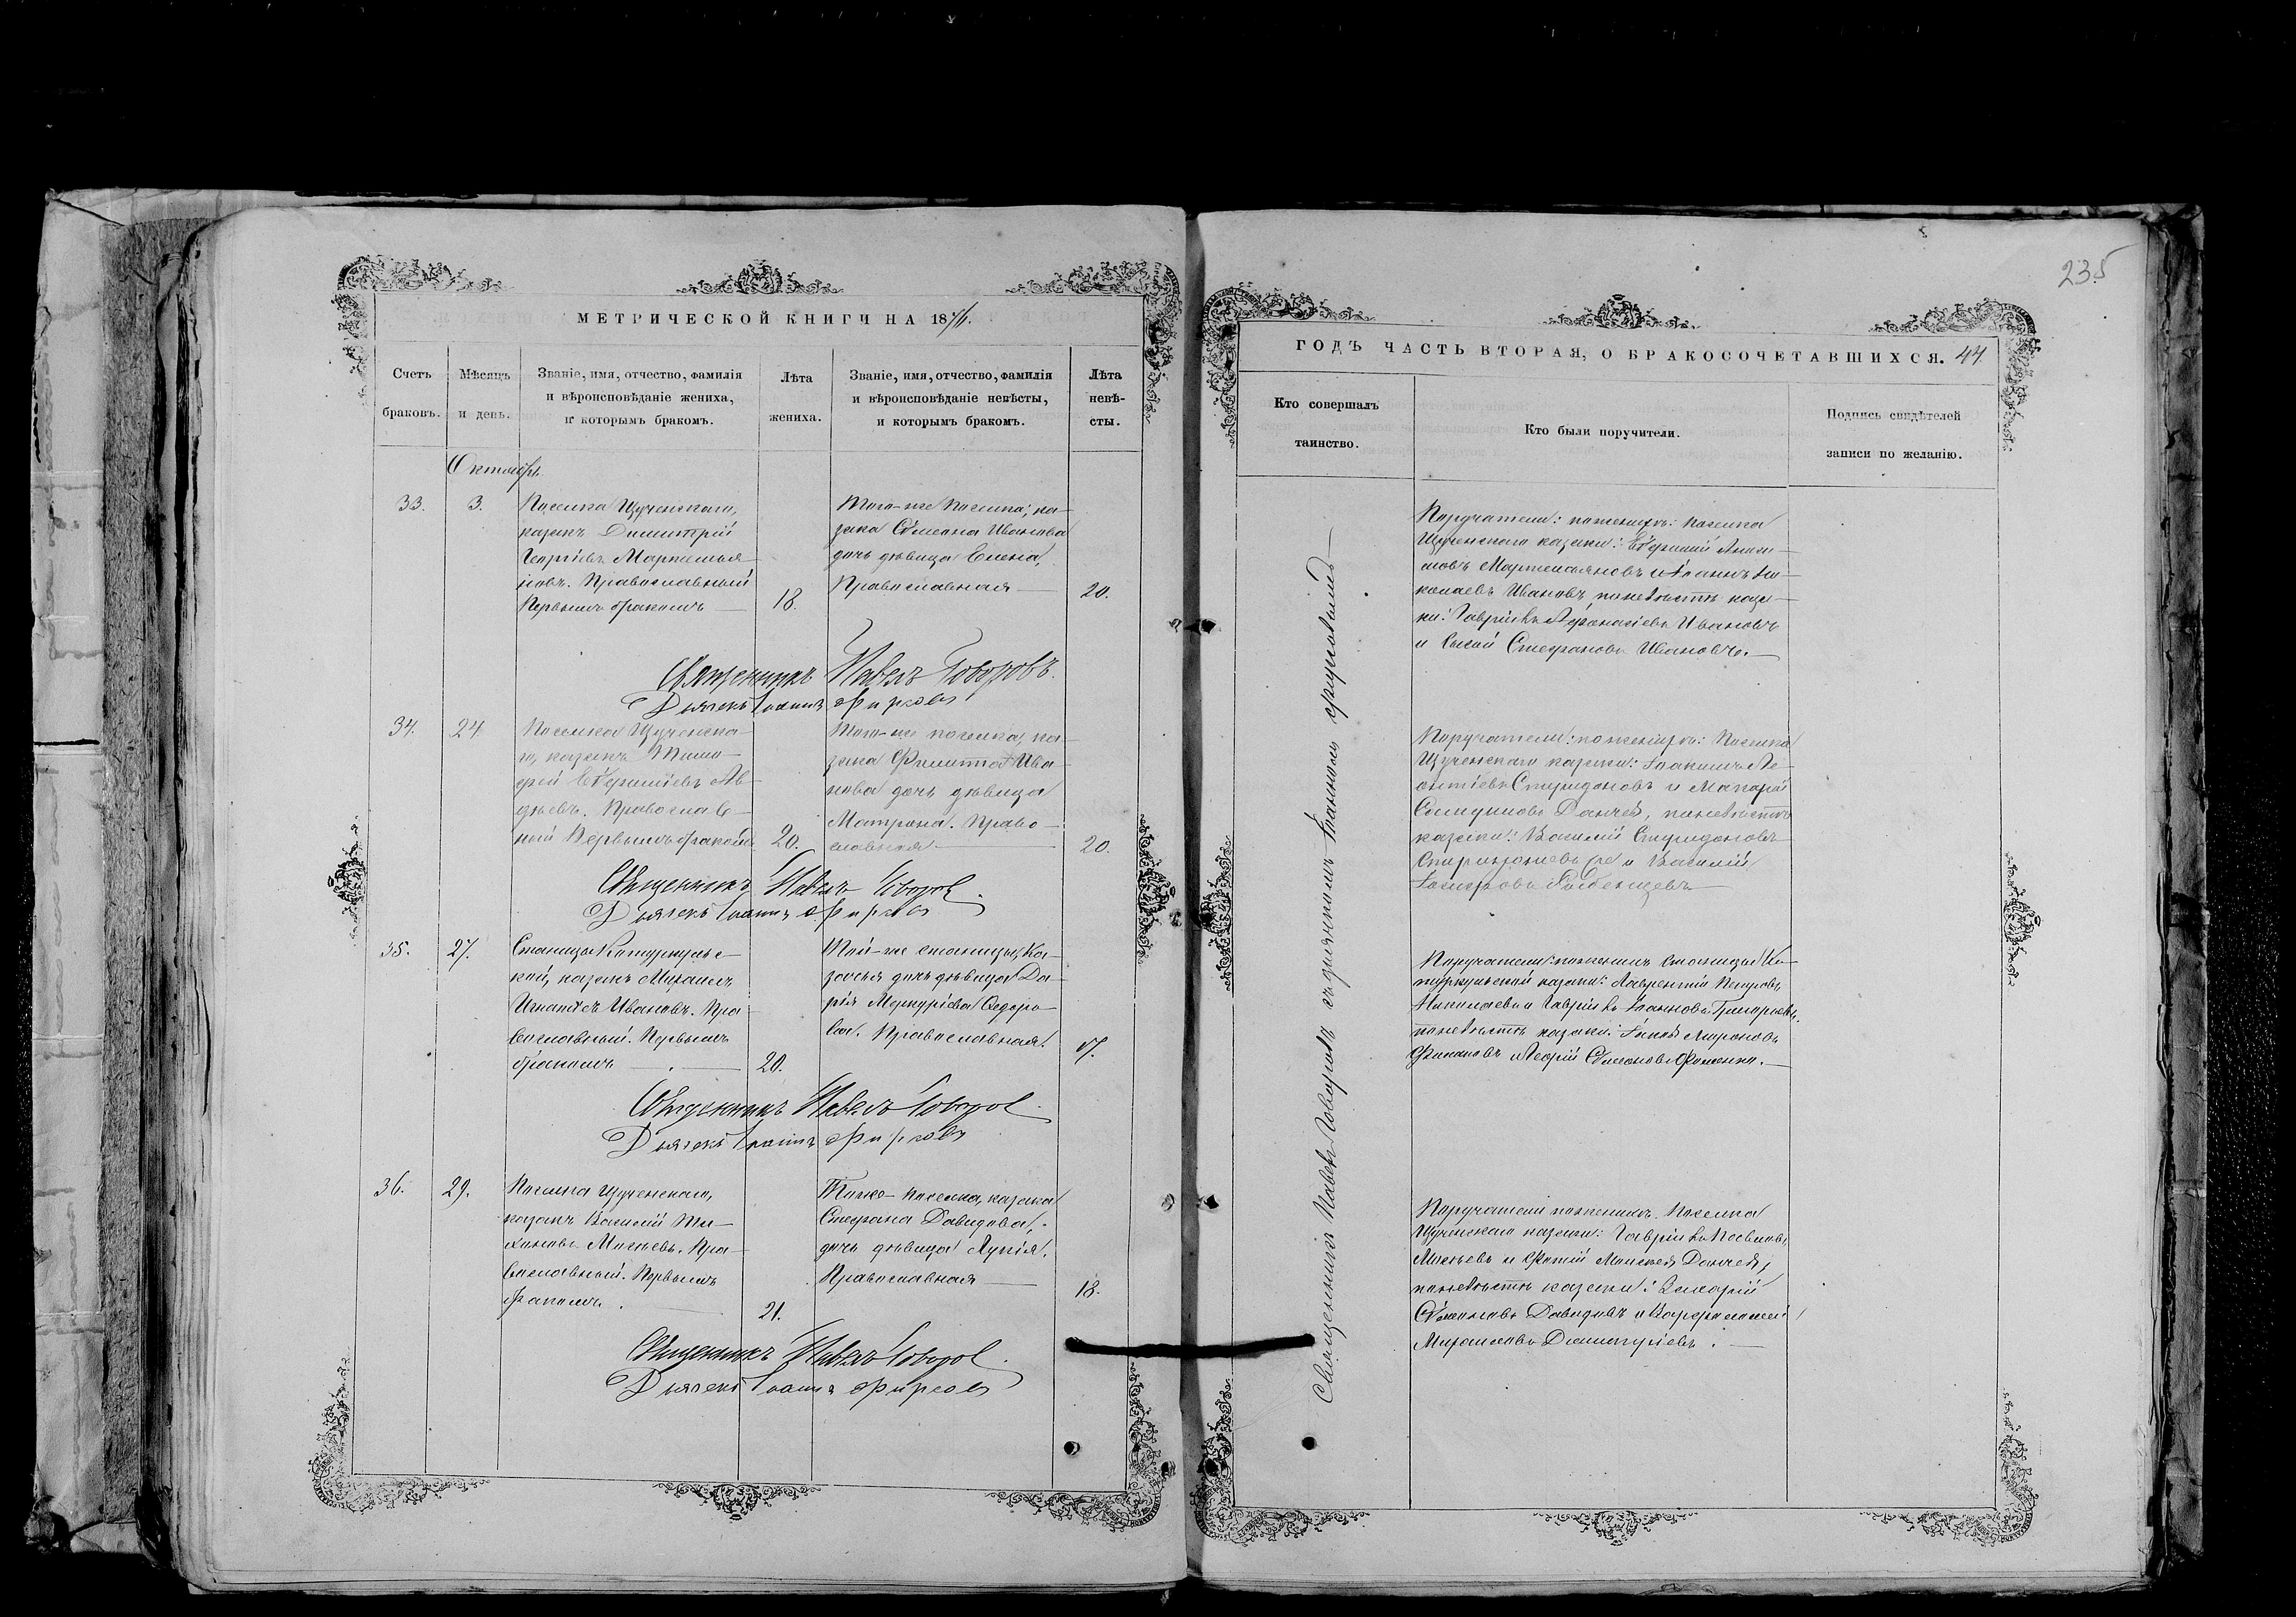 МЕТРИЧЕСКОЙ КНИГИ НА 18
Счетъ браковъ.
Мѣсяцъ и день.
Званіе, имя, отчество, фамилія
и вѣроисповѣданіе жениха,
и которымъ бракомъ.
Лѣта жениха.
Званіе, имя, отчество, фамилія
и вѣроисповѣданіе невѣсты,
и которымъ бракомъ.
Лѣта невѣ-
сты.
Октябрь
33.
3.
Поселка Щученскаго,
казакъ Димитрій
Георгіевъ Мартемья-
новъ. Православный
Первымъ бракомъ
18.
Того-же поселка, ка-
зака Сѵмеона Иванова
дочь дѣвица Елена,
Православная
20.
Священникъ Павелъ Говоровъ.
Дьячекъ Іоаннъ Фирсовъ
34.
24
Поселка Щученска-
го, казакъ Тимо-
фей Евфиміевъ Ав-
дѣевъ. Православ-
ный Первымъ бракомъ
20.
Того-же поселка, ка-
зака Филиппа Ива-
нова дочь дѣвица
Матрона. Право-
славная
20.
Священникъ Павелъ Говоров.
Дьячекъ Іоаннъ Фирсовъ
35.
27.
Станицы Котуркуль-
ской, казакъ Михаилъ
Игнатьевъ Ивановъ. Пра-
вославный. Первымъ
бракомъ
20.
Той-же станицы, Ка-
зачья дочь дѣвица Да-
рія Меркуріева Ѳедоро-
ва. Православная.
17.
Священникъ Павелъ Говоров.
Дьячекъ Іоаннъ Фирсовъ
36.
29.
Поселка Щученскаго,
казакъ Василій Ти-
хоновъ Михѣевъ. Пра-
вославный. Первымъ
бракомъ.
21.
Тогоже поселка, казака
Стефана Давидова,
дочь дѣвица Лукія.
Православная
18.
Священникъ Павелъ Говоров.
Дьячекъ Іоаннъ Фирсовъ
235
ГОДЪ ЧАСТЬ ВТОРАЯ, О БРАКОСОЧЕТАВШИХСЯ. 44
Кто совершалъ
таинство.
Кто были поручители.
Подпись свидѣтелей
записи по желанію.
Священникъ Павелъ Говоровъ съ дьячкомъ Іоанномъ Фирсовымъ
Поручатели: по женихѣ: поселка
Щученскаго казаки: Евфимій
Мартемьяновъ и Іоаннъ Ни-
колаевъ Ивановъ, по невѣстѣ каза-
ки: Гавріилъ Афонасіевъ Ивановъ
и Стефановъ Ивановъ.
Поручатели: по женихѣ: Поселка
Щученскаго казаки: Іоакимъ Ле-
онтіевъ Спиридоновъ и Макарій
Данчев, по невѣстѣ
казаки: Василій Спиридоновъ
и Василій
Поручатели: по женихѣ Станицы Ко-
туркульской казаки: Лаврентій Петровъ
Николаевъ и Гавріилъ Іоанновъ Григорьевъ.
по невѣстѣ казаки: Іаковъ Мироновъ
и Георгій Сѵмеоновъ Фоменко.
Поручатели по женихѣ. Поселка
Щученскаго казаки: Гавріилъ Павловъ
Михѣевъ и Фотій Данчев,
по невѣстѣ казаки: Захарій
Сѵмеоновъ Давидовъ и Варфоломей
Михайловъ Димитріевъ.